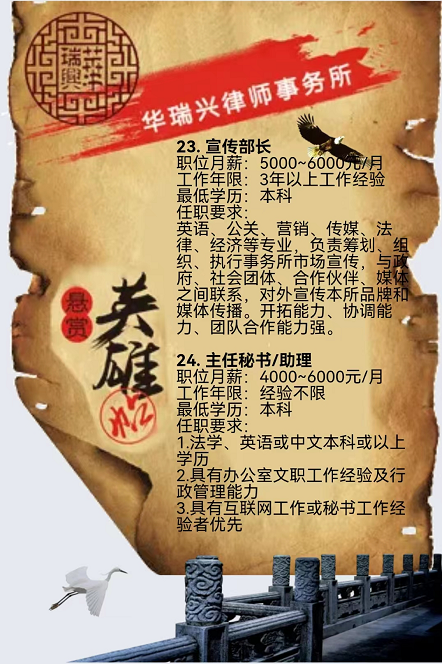 瑞華
興洋
华瑞兴律师事务所
23. 宣传部长
职位月薪：5000~6000元/月
工作年限：3年以上工作经验
最低学历：本科
任职要求：
英语、公关、营销、传媒、法
律、经济等专业，负责筹划、组
织、执行事务所市场宣传，与政
府、社会团体、合作伙伴、媒体
之间联系，对外宣传本所品牌和
媒体传播。开拓能力、协调能
力、团队合作能力强。
悬赏
英雄
帖
24. 主任秘书/助理
职位月薪：4000~6000元/月
工作年限：经验不限
最低学历：本科
任职要求：
1.法学、英语或中文本科或以上
学历
2.具有办公室文职工作经验及行
政管理能力
3.具有互联网工作或秘书工作经
验者优先